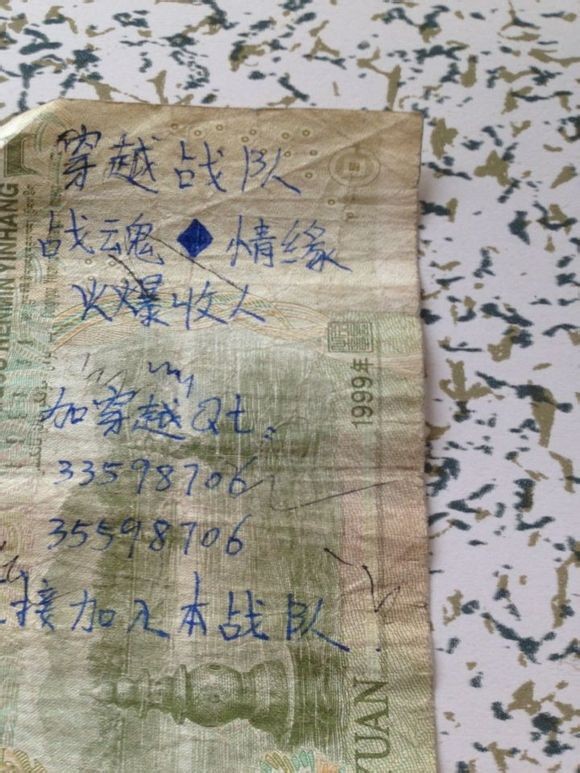 穿越战队
战魂◆情缘
火爆收人
加穿越Qt:
33598706
35598706
接加入本战队
RENMIN YINHANG
1999年
YUAN